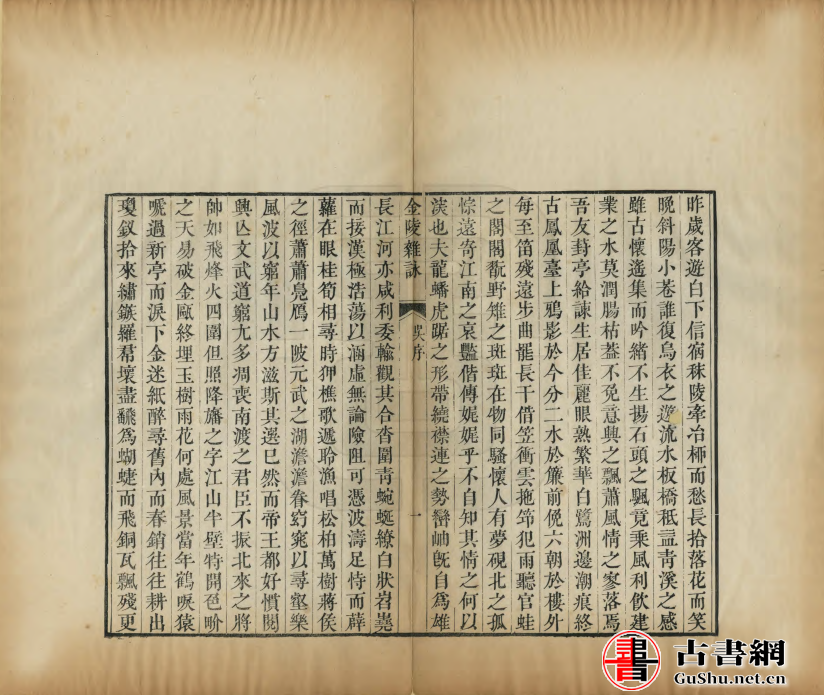 昨歲客遊白下信宿秣陵牽冶柳而愁長拾落花而笑
晚斜陽小巷誰復烏衣之遊流水板橋秪益青溪之感
雖古懷遙集而吟緒不生揚石頭之颿竟乘風利飲建
業之水莫潤腸枯葢不免意興之飄蕭風情之寥落焉
吾友葑亭給諫生居佳麗眼熟繁華白鷺洲邊潮痕終
古鳳凰臺上鴉影於今分二水於簾前俛六朝於樓外
每至笛殘遠步曲罷長干借笠衝雲拖笻犯雨聽官蛙
之閣閣翫野雉之斑斑在物同騷懷人有夢硯北之孤
悰遠寄江南之哀豔偕傳娓娓乎不自知其情之何以
淡也夫龍蟠虎踞之形帶繞襟連之勢巒岫旣自爲雄
金陵雜詠
吳序
一
長江河亦咸利委輸觀其合沓圍青蜿蜒繚白狀岧嶤
而接漢極浩蕩以涵虛無論險阻可憑波濤足恃而薜
蘿在眼桂筍相尋時狎樵歌遞聆漁唱松柏萬樹蔣侯
之徑蕭蕭鳧鴈一陂元武之湖澹澹眷窈窕以尋壑樂
風波以窮年山水方滋斯其選已然而帝王都好慣閱
興亾文武道窮尤多凋喪南渡之君臣不振北來之將
帥如飛烽火四圍但照降旛之字江山半壁特開邑吩
之天易破金甌終埋玉樹雨花何處風景當年鶴唳猿
嗁過新亭而淚下金迷紙醉尋舊內而春銷往往耕出
瓊釵拾來繡鏃羅帬壞盡飜爲蝴蜨而飛銅瓦飄殘更
古書網
GuShu.net.cn